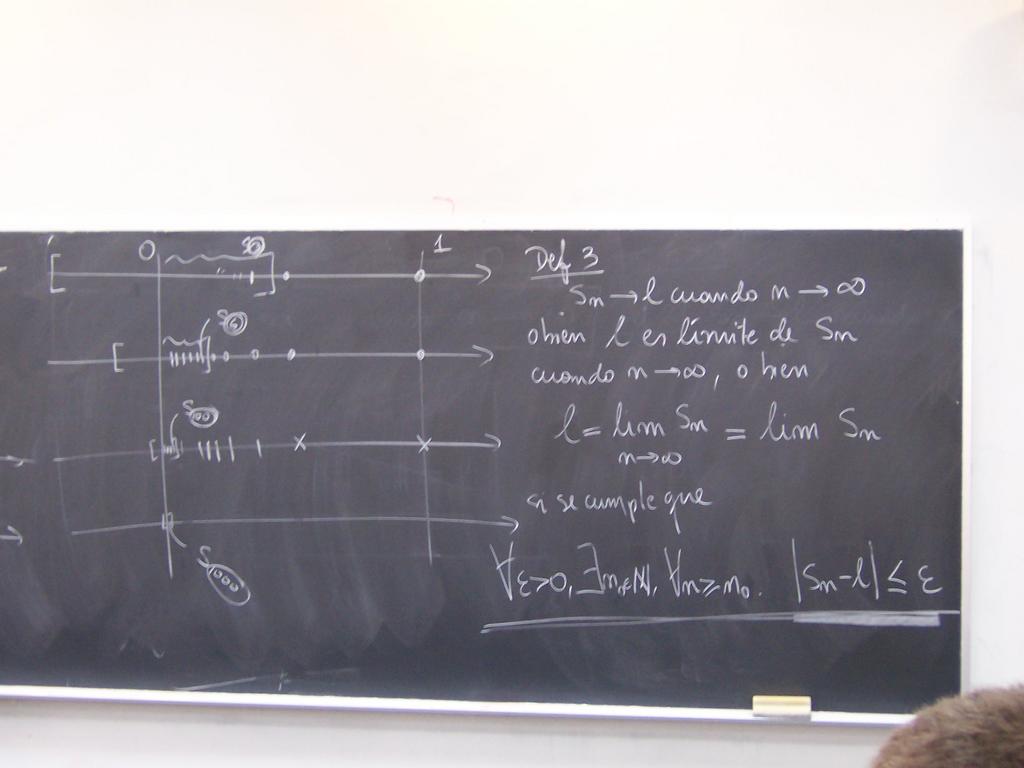 0
1
Def 3
Sn → l cuando n → ∞
o bien l es límite de Sn
cuando n → ∞, o bien
l = lim Sn = lim Sn
n → ∞
si se cumple que
∀ε>0, ∃n₀∈ℕ, ∀n≥n₀. |Sn-l| ≤ ε